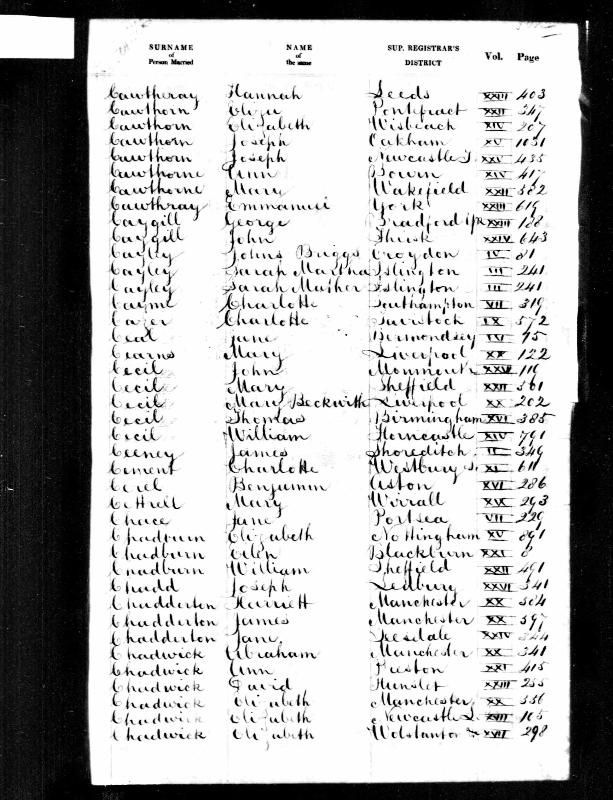 SURNAME of Person Married NAME of the same SUP. REGISTRAR'S DISTRICT Vol. Page
Cawtheray Hannah Leeds XXIII 403
Cawthorn Eliza Pontefract XXII 347
Cawthorn Elizabeth Wisbeach XIV 207
Cawthorn Joseph Oakham XV 1031
Cawthorn Joseph Newcastle T. XXV 435
Cawthorne Ann Bourn XIV 417
Cawthorne Mary Wakefield XXII 502
Cawthray Emmanuel York XXIII 619
Caygill George Bradford Yk XXIII 188
Caygill John Thirsk XXIV 643
Cayley Johns Briggs Croydon IV 81
Cayley Sarah Martha Islington III 241
Cayley Sarah Mather Islington III 241
Cayme Charlotte Southampton VII 319
Cazer Charlotte Tavistock IX 572
Ceal Jane Bermondsey IV 75
Cearns Mary Liverpool XX 122
Cecil John Monmouth XXVI 119
Cecil Mary Sheffield XXII 561
Cecil Mary Beckwith Liverpool XX 202
Cecil Thomas Birmingham XVI 385
Cecil William Horncastle XIV 791
Ceeney James Shoreditch II 349
Cement Charlotte Westbury S. XI 611
Cerel Benjamin Aston XVI 286
Cettrell Mary Wirrall XIX 293
Chace Jane Portsea VII 229
Chadburn Elizabeth Nottingham XV 891
Chadburn Ellen Blackburn XXI 8
Chadburn William Sheffield XXII 491
Chadd Joseph Ledbury XXVI 341
Chadderton Harriett Manchester XX 504
Chadderton James Manchester XX 597
Chadderton Jane Teesdale XXIV 344
Chadwick Abraham Manchester XX 341
Chadwick Ann Preston XXI 415
Chadwick David Hunslet XXIII 255
Chadwick Elizabeth Manchester XX 556
Chadwick Elizabeth Newcastle L. XVII 105
Chadwick Elizabeth Wolstanton XVII 298